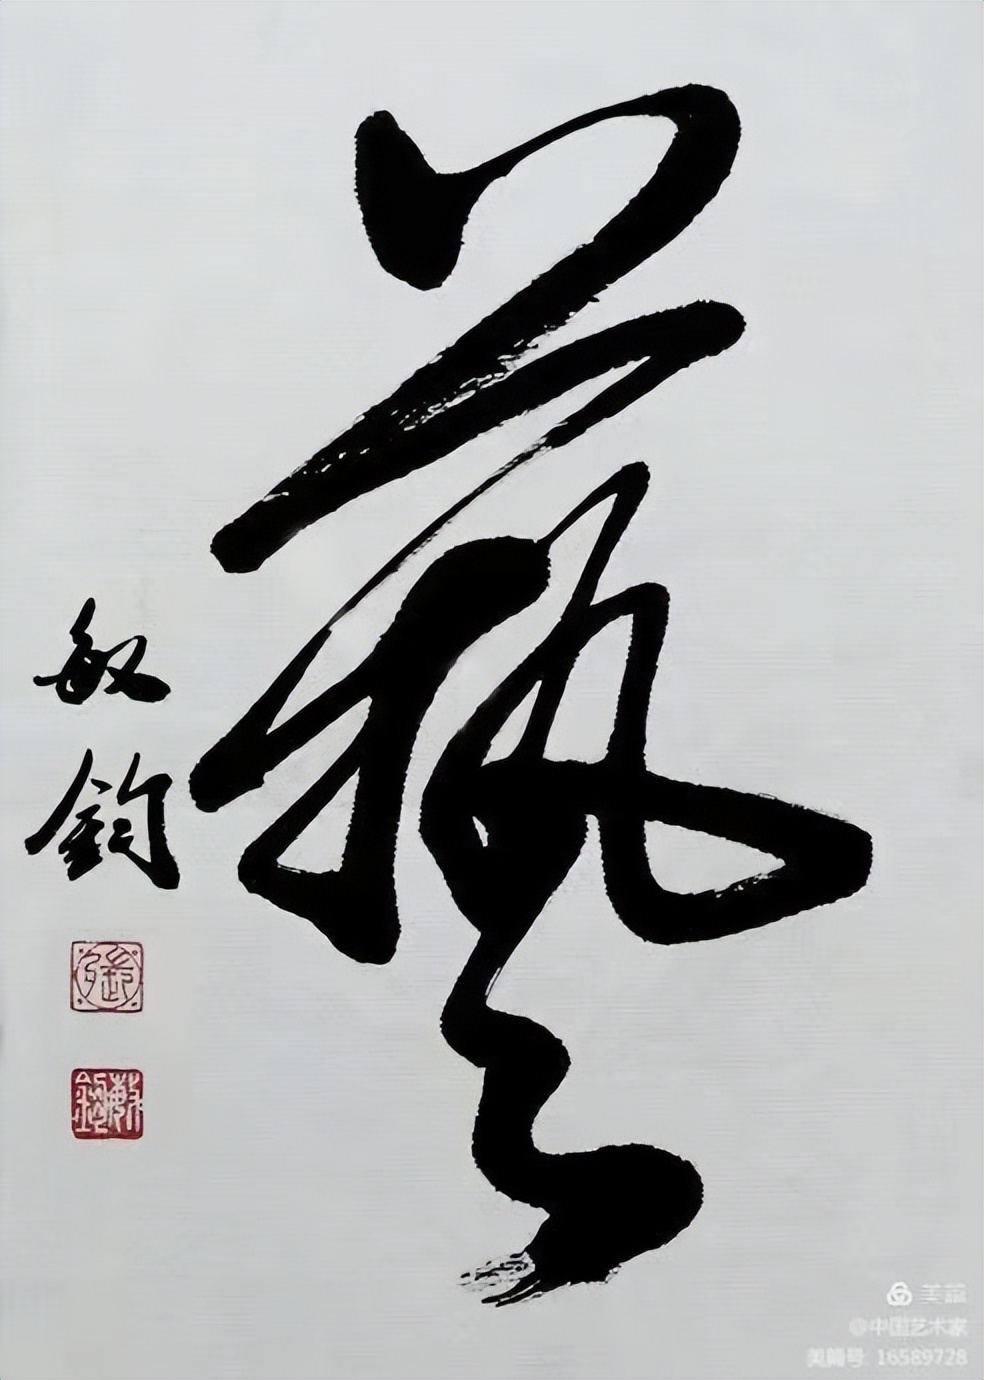 藝
敏鈞
張
敏鈞
美篇
@中国艺术家
美篇号 16589728